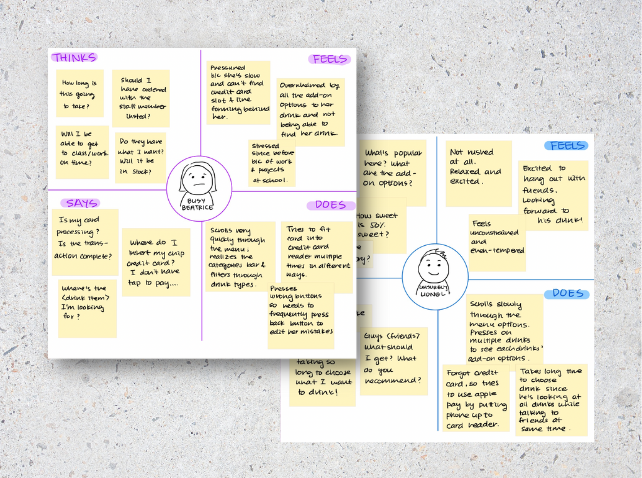 THINKS
How long is
this going
to take?
Should I
have ordered
with the
staff member
instead?
Will I be
able to get
to class/work
on time?
Do they have
what I want?
Will it be
in stock?
FEELS
Pressured
b/c she's slow
and can't find
credit card
slot & line
forming behind
her.
Overwhelmed by
all the add-on
options to her
drink and not
being able to
find her drink
Stressed
since before
b/c of work
& projects
at school.
BUSY
BEATRICE
SAYS
Is my card
processing?
Is the trans-
action complete?
Where do I
insert my chip
credit card?
I don't have
tap to pay....
Where's the
(drink item)
I'm looking
for?
DOES
Scrolls very
quickly through
the menu,
realizes the
categories bar &
filters through
drink types.
Tries to fit
card into
credit card
reader multiple
times in different
ways.
Presses
wrong buttons
so needs to
frequently press
back button to
edit her mistakes
What's popular
here? What
are the add-
on options?
How sweet
is 50%
sweet?
FEELS
Not rushed
at all.
Relaxed and
excited.
Excited to
hang out with
friends.
Looking
forward to
his drink!
Feels
unconstrained
and
even-tempered
LEISURELY
LIONEL
Guys (friends)
what should
I get? What
do you
recommend?
taking so
long to choose
what I want
to drink!
DOES
Scrolls slowly
through the
menu options.
Presses on
multiple drinks
to see each drinks'
add-on options.
Forgot credit
card, so tries
to use apple
pay by putting
phone up to
card reader.
Takes long time
to choose
drink since
he's looking at
all drinks while
talking to
friends at
same time.